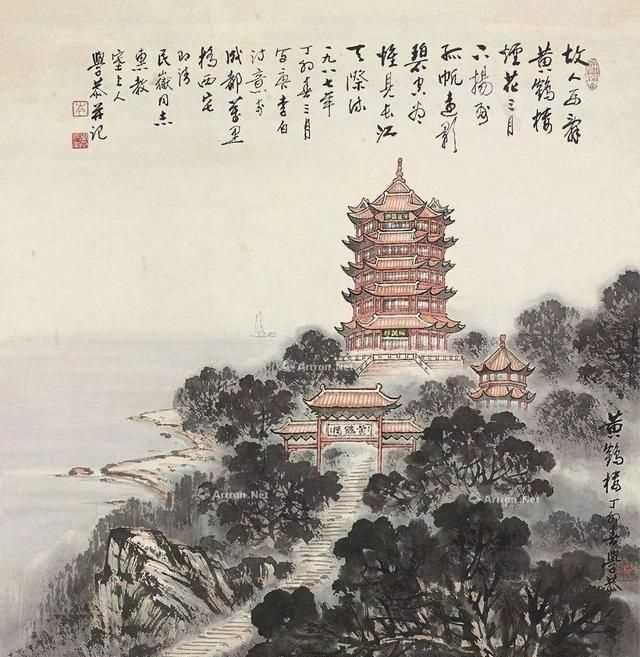 故人西辭
黃鶴樓
煙花三月
下揚州
孤帆遠影
碧空盡
惟見長江
天際流
一九八七年
丁卯春三月
寫唐李白
詩意於
成都萬里
橋西宅
即請
民嶽同志
惠教
塞上人
學恭并記
黃鶴樓
黃鶴樓丁卯春學恭
Artron.Net
Artron.Net
Artron.Net
Artron.Net